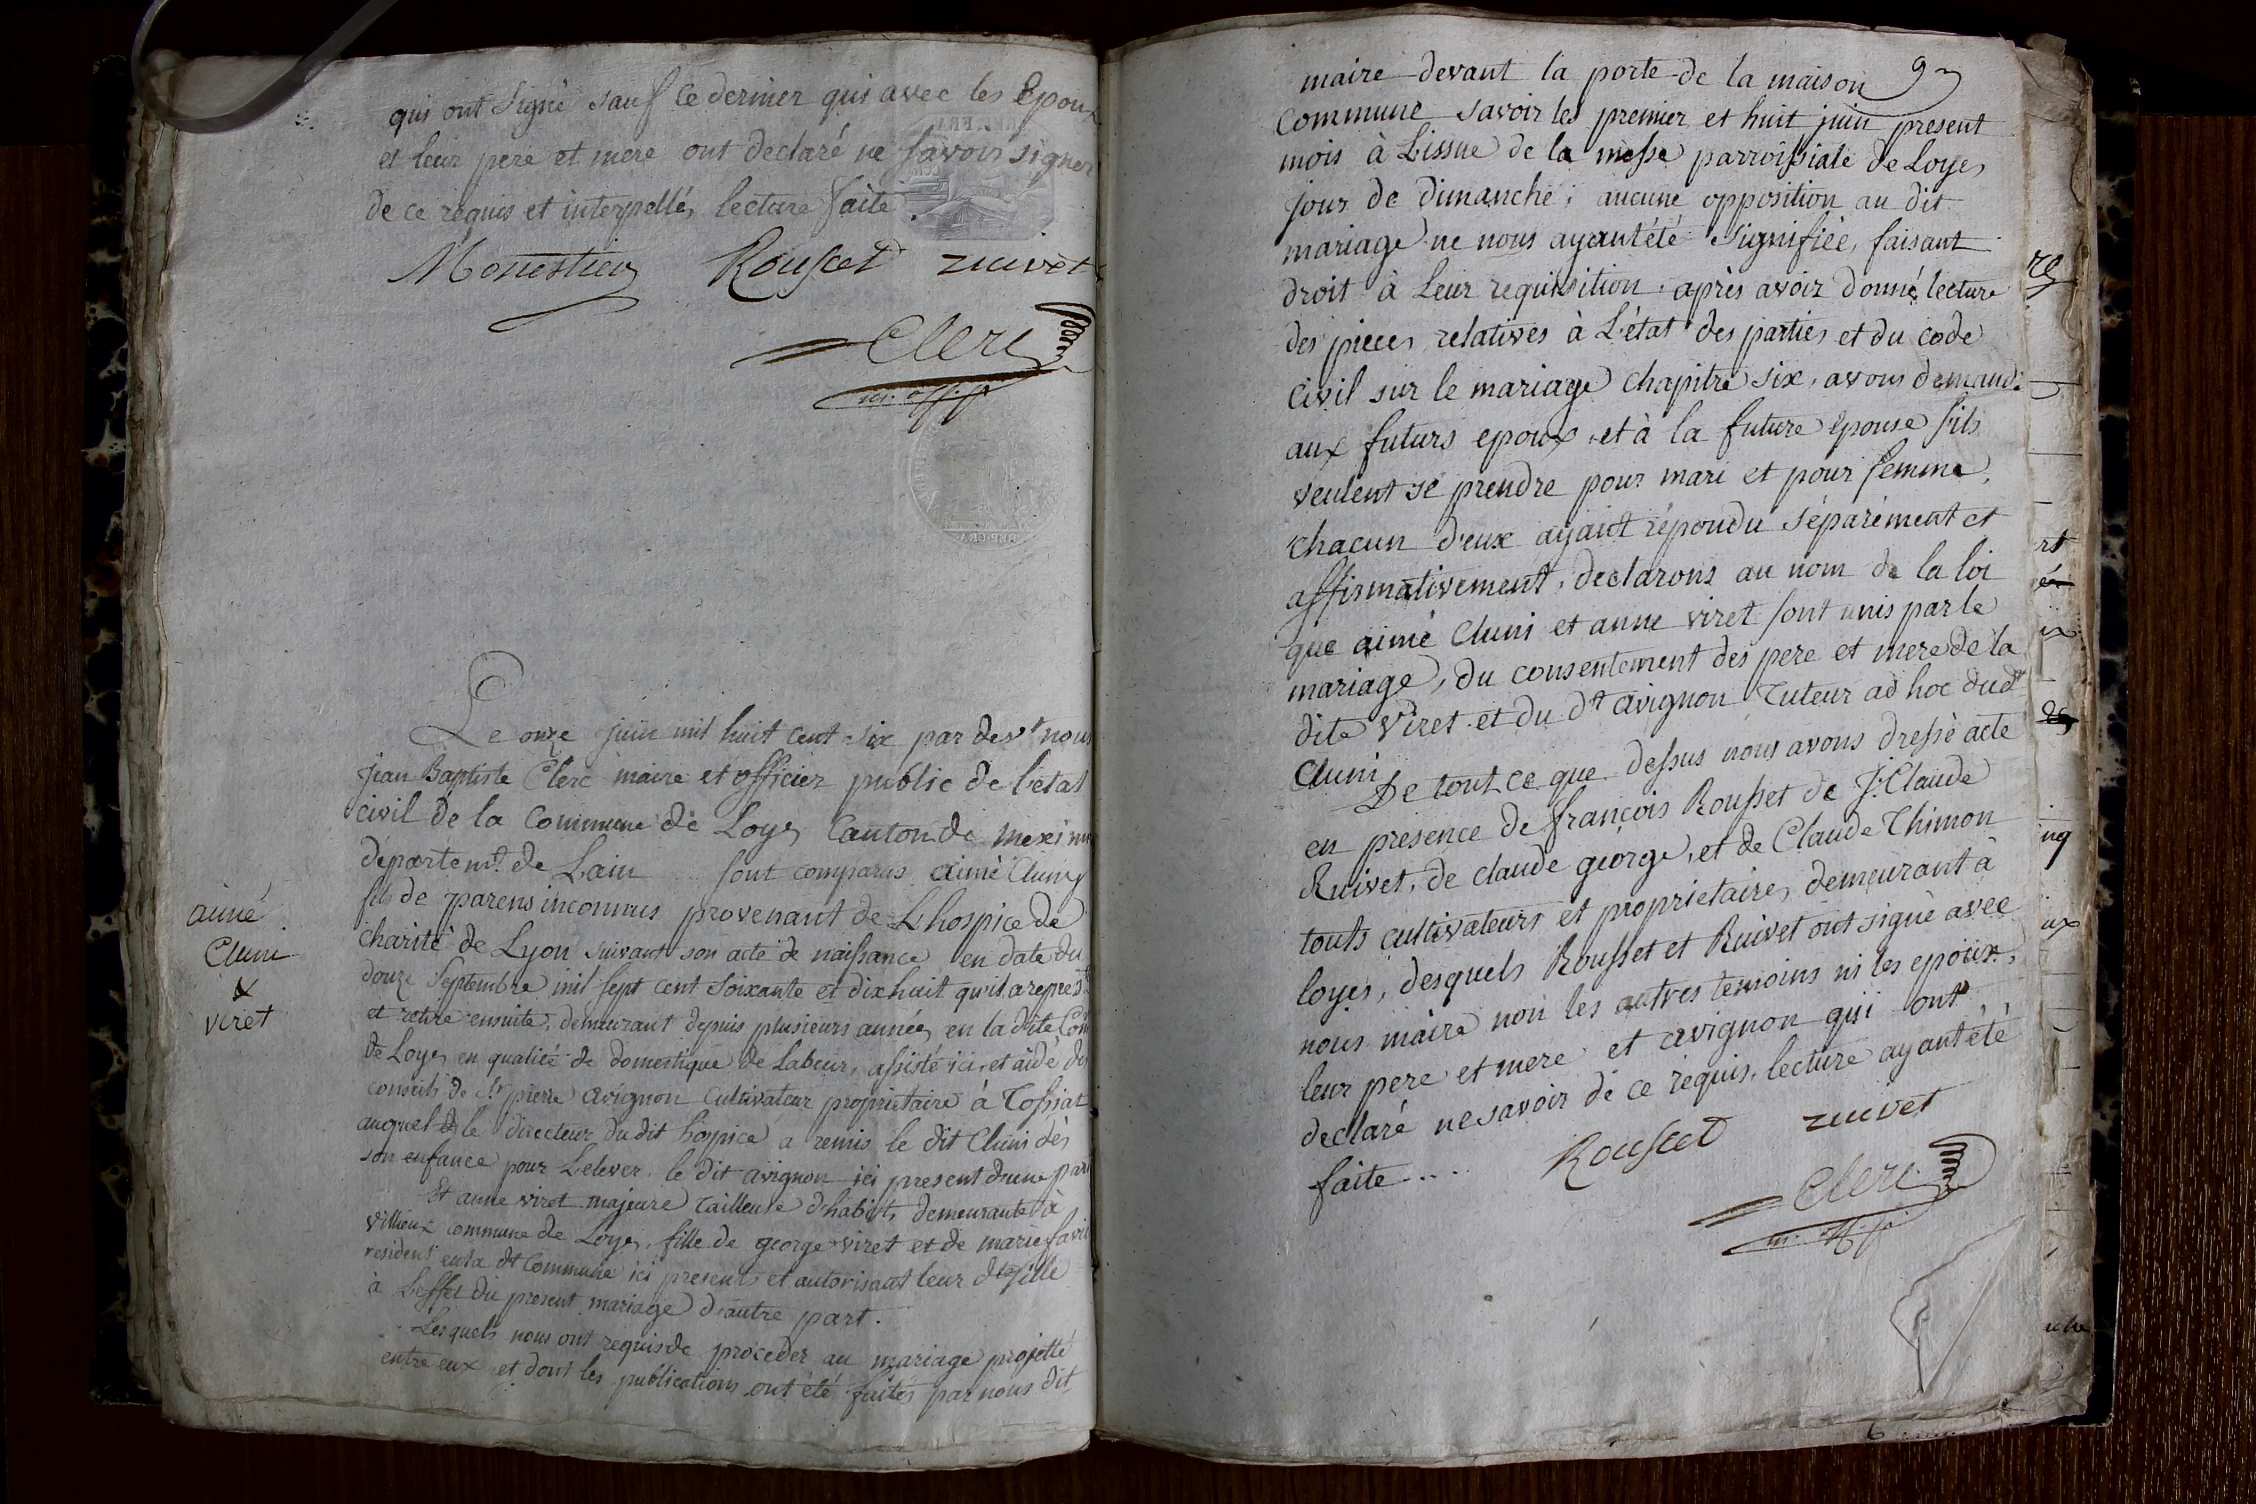 qui ont Signé sauf ce dernier qui avec les Epoux
et leur pere et mere ont declaré ne savoir signer
de ce requis et interpellés lecture faite.
Monestier Rousset ruivet
Clerc
m. off. p.
Le onze juin mil huit cent six par devt nous
Jean Baptiste Clerc maire et officier public de l'etat
civil de la Commune de Loyes Canton de meximi
departemt. de Lain sont comparus aimé Cluny
fils de parens inconnus provenant de Lhospice de
charité de Lyon suivant son acte de naissance en date du
aimé
Cluni
&
viret
douze Septembre mil sept cent soixante et dixhuit qu'il a
et retiré ensuite, demeurant depuis plusieurs années en la dite Com
de Loyes en qualité de domestique de Labeur, assisté ici, et aidé des
conseils de Sr. pierre avignon Cultivateur proprietaire à Tossiat
auquel le directeur du dit hospice a remis le dit Cluni dès
son enfance pour Lelever. le dit avignon ici present d'une part
Et anne viret majeure tailleuse d'habits, demeurante à
villieux commune de Loyes, fille de george viret et de marie
resident en la dt Commune ici presents et autorisant leur dte fille
à L'effet du present mariage d'autre part.
Lesquels nous ont requis de proceder au mariage projetté
entre eux et dont les publications ont été faites par nous dit
9
maire devant la porte de la maison
commune savoir les premier et huit juin present
mois à Lissue de la messe parroissiale de Loyes
jour de dimanche; aucune opposition au dit
mariage ne nous ayant été signifiée, faisant
droit à Leur requisition. après avoir donné lecture
des pieces relatives à L'état des parties et du code
Civil sur le mariage chapitre six, avons demandé
aux futurs epoux et à la future épouse s'ils
veulent se prendre pour mari et pour femme,
chacun d'eux ayant répondu séparément et
affirmativement, declarons au nom de la loi
que aimé Cluni et anne viret sont unis par le
mariage, du consentement des pere et mere de la
dite Viret et du dt avignon Tuteur ad hoc dudt
Cluni
De tout ce que dessus nous avons dressé acte
en presence de françois Rousset de J. Claude
Ruivet, de claude george, et de Claude Thimon
touts cultivateurs et proprietaires demeurant à
loyes, desquels Rousset et Ruivet ont signé avec
nous maire non les autres temoins ni les epoux,
leur pere et mere et avignon qui ont
declaré ne savoir de ce requis, lecture ayant été
faite....
Rousset ruivet
Clerc
m. off. p.